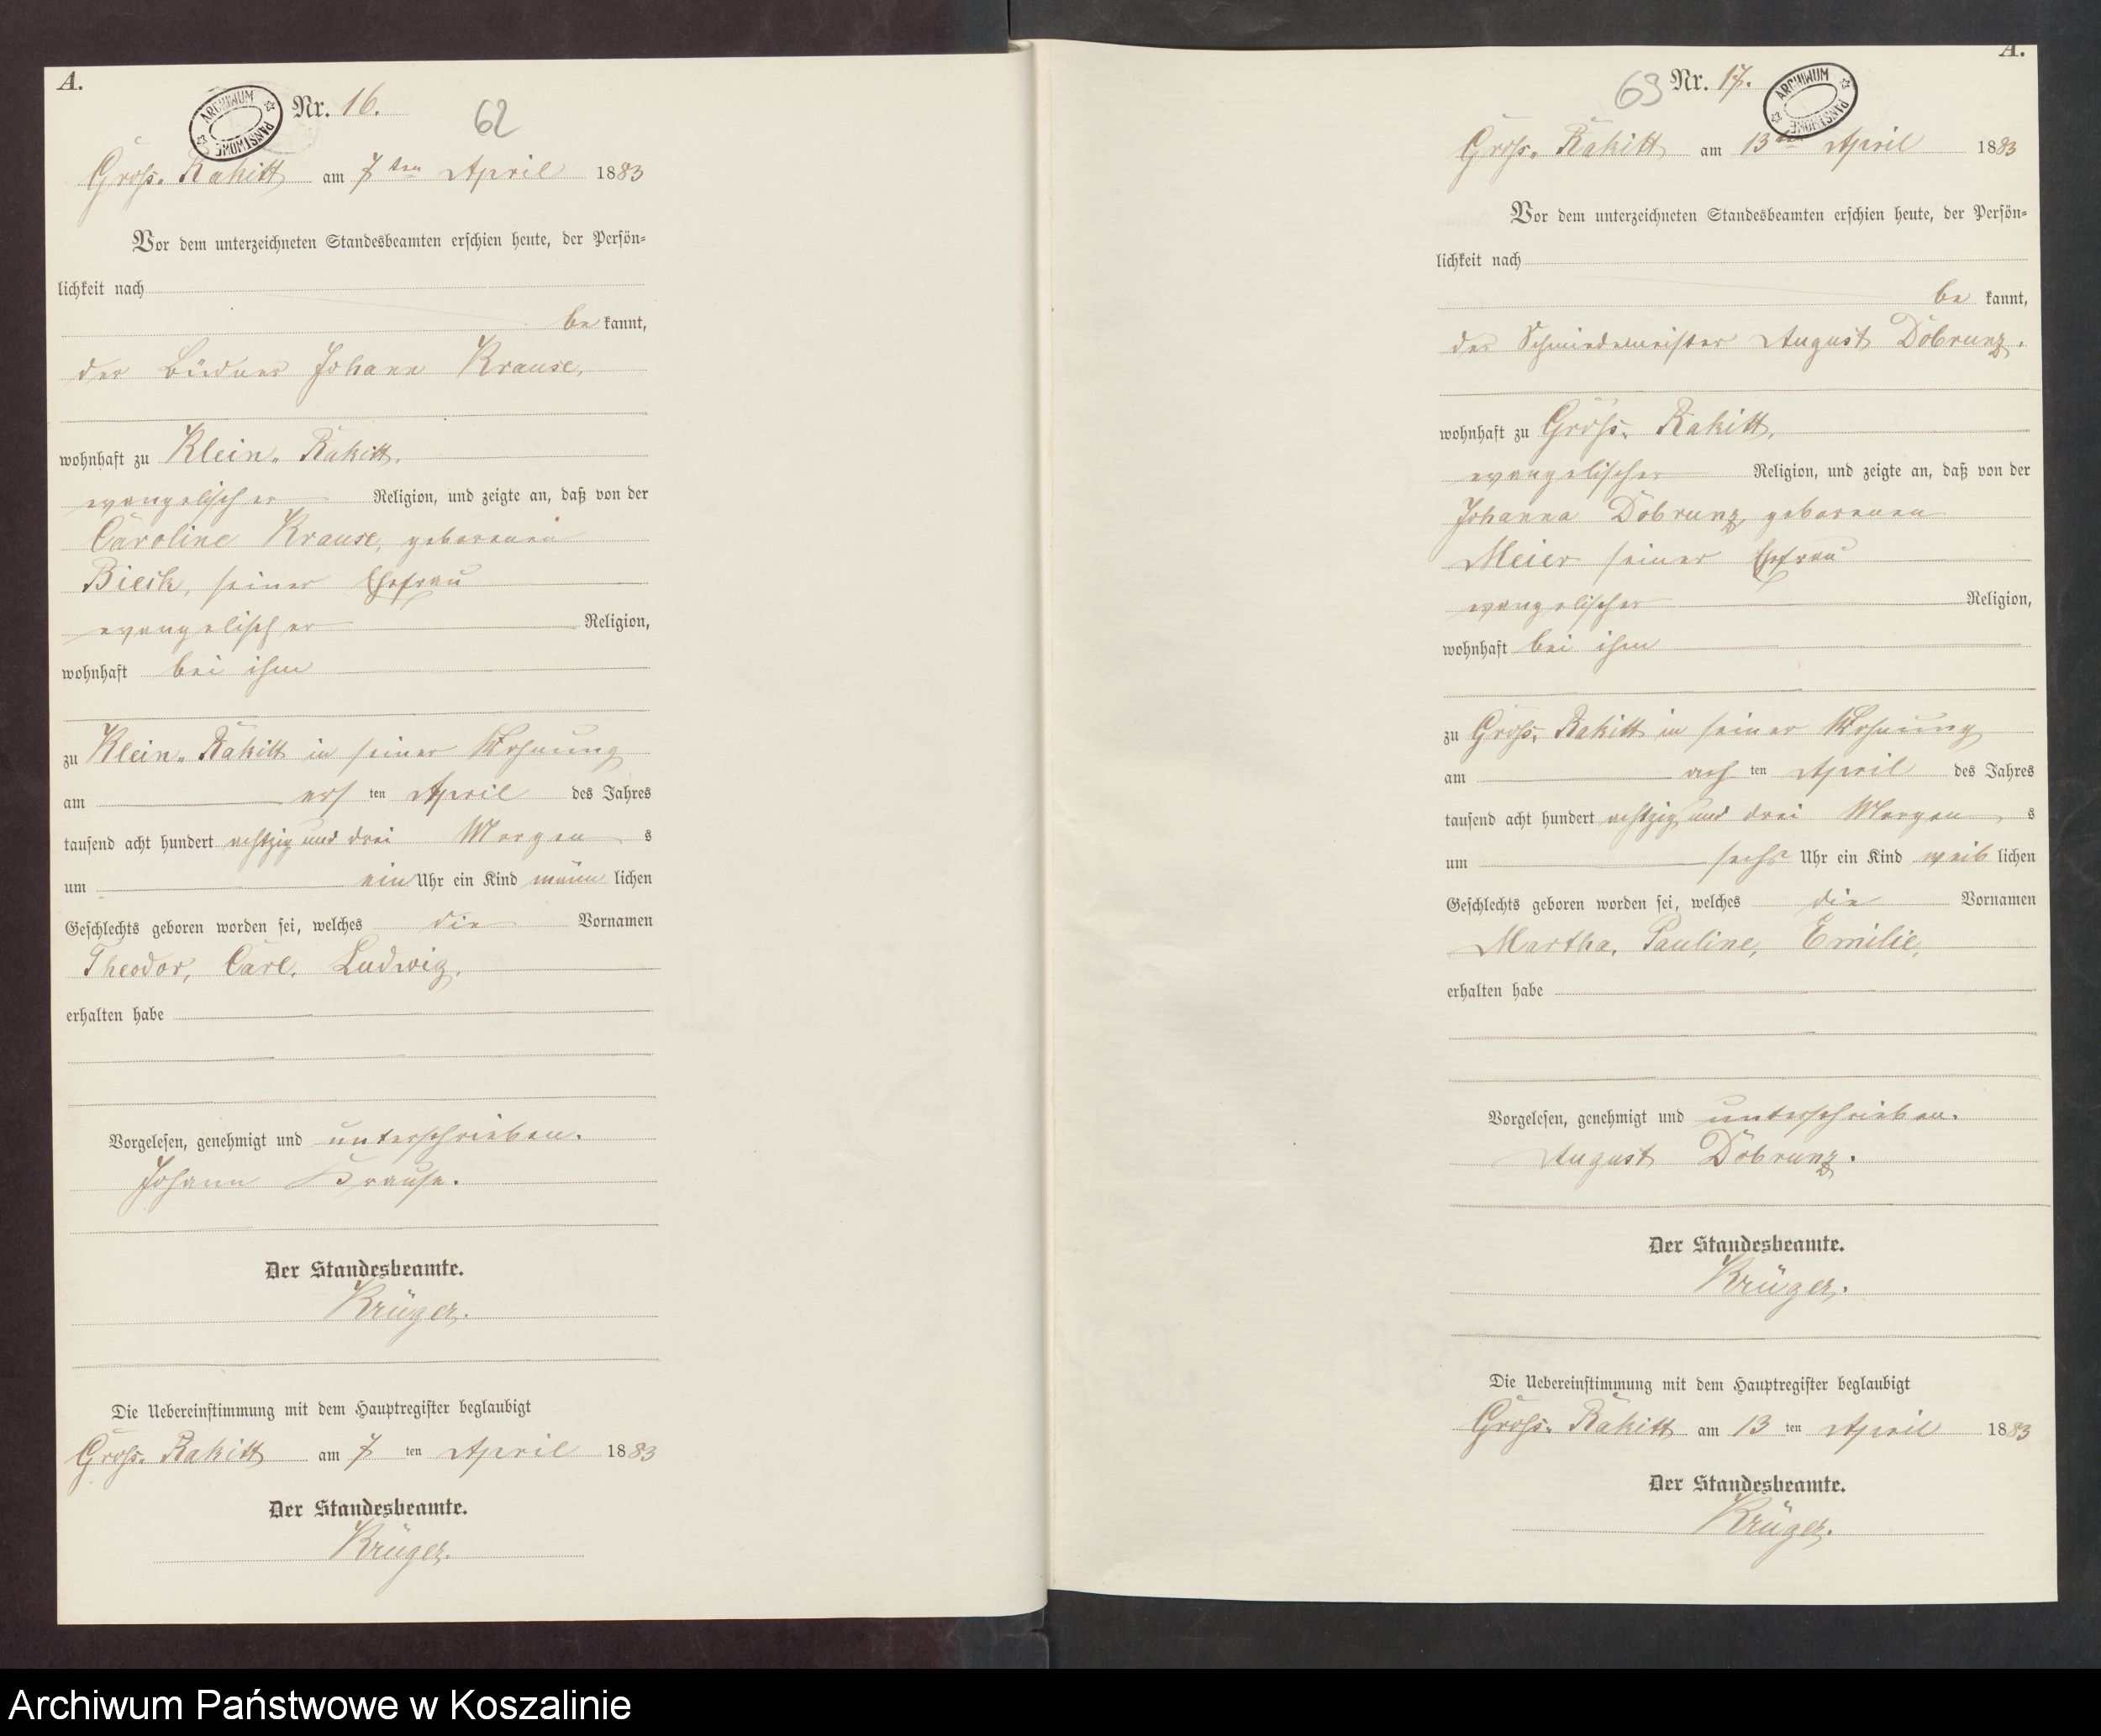 A.
ARCHIWUM PAŃSTWOWE
Nr. 16.
62
Gross. Rakitt am 7ten April 1883
Vor dem unterzeichneten Standesbeamten erschien heute, der Persön-
lichkeit nach
be kannt,
der Büdner Johann Krause,
wohnhaft zu Klein. Rakitt.
evangelischer Religion, und zeigte an, daß von der
Caroline Krause, geborenen
Bieck, seiner Ehefrau
evangelischer Religion,
wohnhaft bei ihm
zu Klein. Rakitt in seiner Wohnung
am ers ten April des Jahres
tausend acht hundert achtzig und drei Morgen s
um ein Uhr ein Kind männ lichen
Geschlechts geboren worden sei, welches die Vornamen
Theodor, Carl, Ludwig.
erhalten habe
Vorgelesen, genehmigt und unterschrieben.
Johann Krause.
Der Standesbeamte.
Krüger.
Die Uebereinstimmung mit dem Hauptregister beglaubigt
Gross. Rakitt am 7 ten April 1883
Der Standesbeamte.
Krüger.
A.
63
Nr. 17.
ARCHIWUM PAŃSTWOWE
Gross. Rakitt am 13ten April 1883
Vor dem unterzeichneten Standesbeamten erschien heute, der Persön-
lichkeit nach
be kannt,
der Schmiedemeister August Dobrunz.
wohnhaft zu Gross. Rakitt.
evangelischer Religion, und zeigte an, daß von der
Johanna Dobrunz, geborenen
Meier seiner Ehefrau
evangelischer Religion,
wohnhaft bei ihm
zu Gross. Rakitt in seiner Wohnung
am ach ten April des Jahres
tausend acht hundert achtzig und drei Morgen s
um sechs Uhr ein Kind weib lichen
Geschlechts geboren worden sei, welches die Vornamen
Martha, Pauline, Emilie,
erhalten habe
Vorgelesen, genehmigt und unterschrieben.
August Dobrunz.
Der Standesbeamte.
Krüger.
Die Uebereinstimmung mit dem Hauptregister beglaubigt
Gross. Rakitt am 13 ten April 1883
Der Standesbeamte.
Krüger.
Archiwum Państwowe w Koszalinie